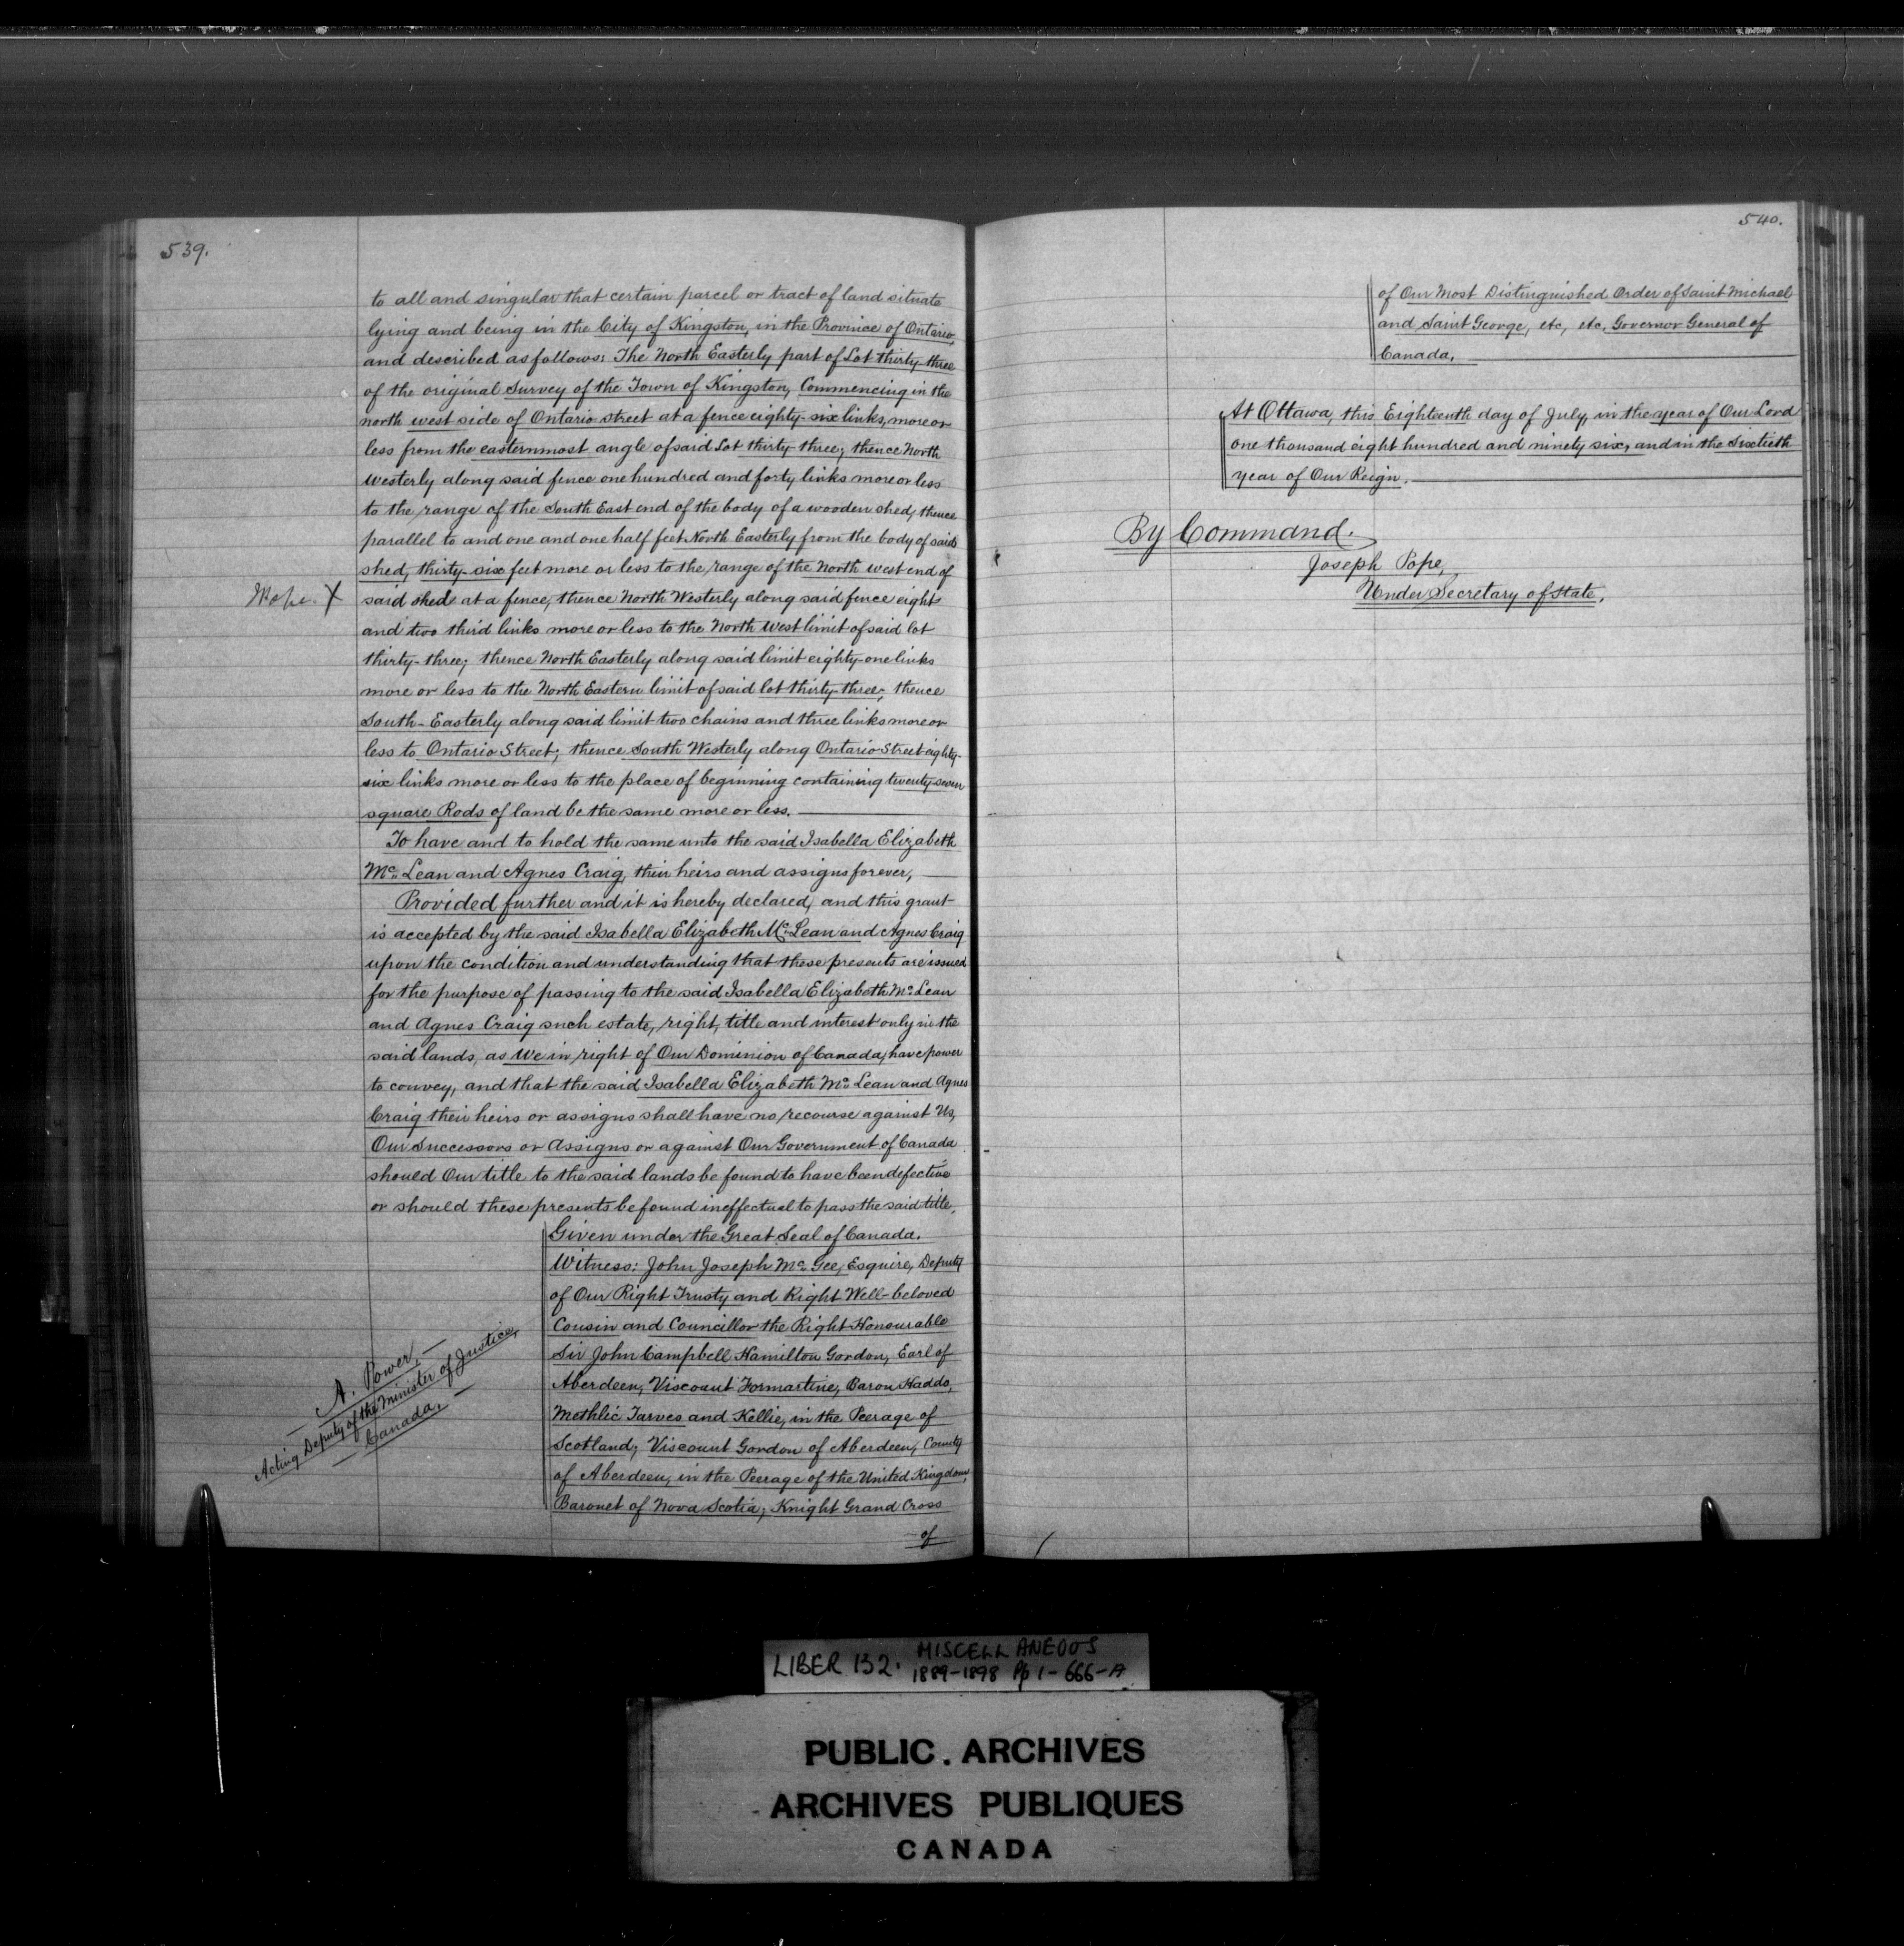 539.
to all and singular that certain parcel or tract of land situate
lying and being in the City of Kingston, in the Province of Ontario,
and described as follows: The North Easterly part of Lot thirty-three
of the original Survey of the Town of Kingston, Commencing in the
north west side of Ontario street at a fence eighty-six links, more or
less from the easternmost angle of said Lot thirty-three; thence North
Westerly along said fence one hundred and forty links more or less
to the range of the South East end of the body of a wooden shed, thence
parallel to and one and one half feet North Easterly from the body of said
shed, thirty-six feet more or less to the range of the North west end of
said shed at a fence, thence North Westerly along said fence eight
and two third links more or less to the North West limit of said lot
thirty-three; thence North Easterly along said limit eighty-one links
more or less to the North Eastern limit of said lot thirty-three, thence
South-Easterly along said limit two chains and three links more or
less to Ontario Street; thence South Westerly along Ontario Street eighty-
six links more or less to the place of beginning containing twenty-seven
square Rods of land be the same more or less.
To have and to hold the same unto the said Isabella Elizabeth
Mc Lean and Agnes Craig, their heirs and assigns forever,
Provided further and it is hereby declared, and this grant
is accepted by the said Isabella Elizabeth Mc Lean and Agnes Craig
upon the condition and understanding that these presents are issued
for the purpose of passing to the said Isabella Elizabeth Mc Lean
and Agnes Craig such estate, right, title and interest only in the
said lands, as We in right of Our Dominion of Canada, have power
to convey, and that the said Isabella Elizabeth Mc Lean and Agnes
Craig their heirs or assigns shall have no recourse against Us,
Our Successors or Assigns or against Our Government of Canada
should Our title to the said lands be found to have been defective
or should these presents be found ineffectual to pass the said title.
Given under the Great Seal of Canada.
Witness: John Joseph Mc Gee, Esquire, Deputy
of Our Right Trusty and Right Well-beloved
Cousin and Councillor the Right Honourable
Sir John Campbell Hamilton Gordon, Earl of
Aberdeen, Viscount Formartine, Baron Haddo,
Methlic Tarves and Kellie, in the Peerage of
Scotland; Viscount Gordon of Aberdeen, County
of Aberdeen, in the Peerage of the United Kingdom,
Baronet of Nova Scotia; Knight Grand Cross
of
A. Power,
Acting Deputy of the Minister of Justice,
Canada.
540.
of Our Most Distinguished Order of Saint Michael
and Saint George, etc, etc. Governor General of
Canada.
At Ottawa, this Eighteenth day of July, in the year of Our Lord
one thousand eight hundred and ninety six, and in the Sixtieth
year of Our Reign.
By Command.
Joseph Pope,
Under Secretary of State.
LIBER 132. MISCELLANEOUS
1889-1898 Pp 1-666-A
PUBLIC. ARCHIVES
ARCHIVES PUBLIQUES
CANADA